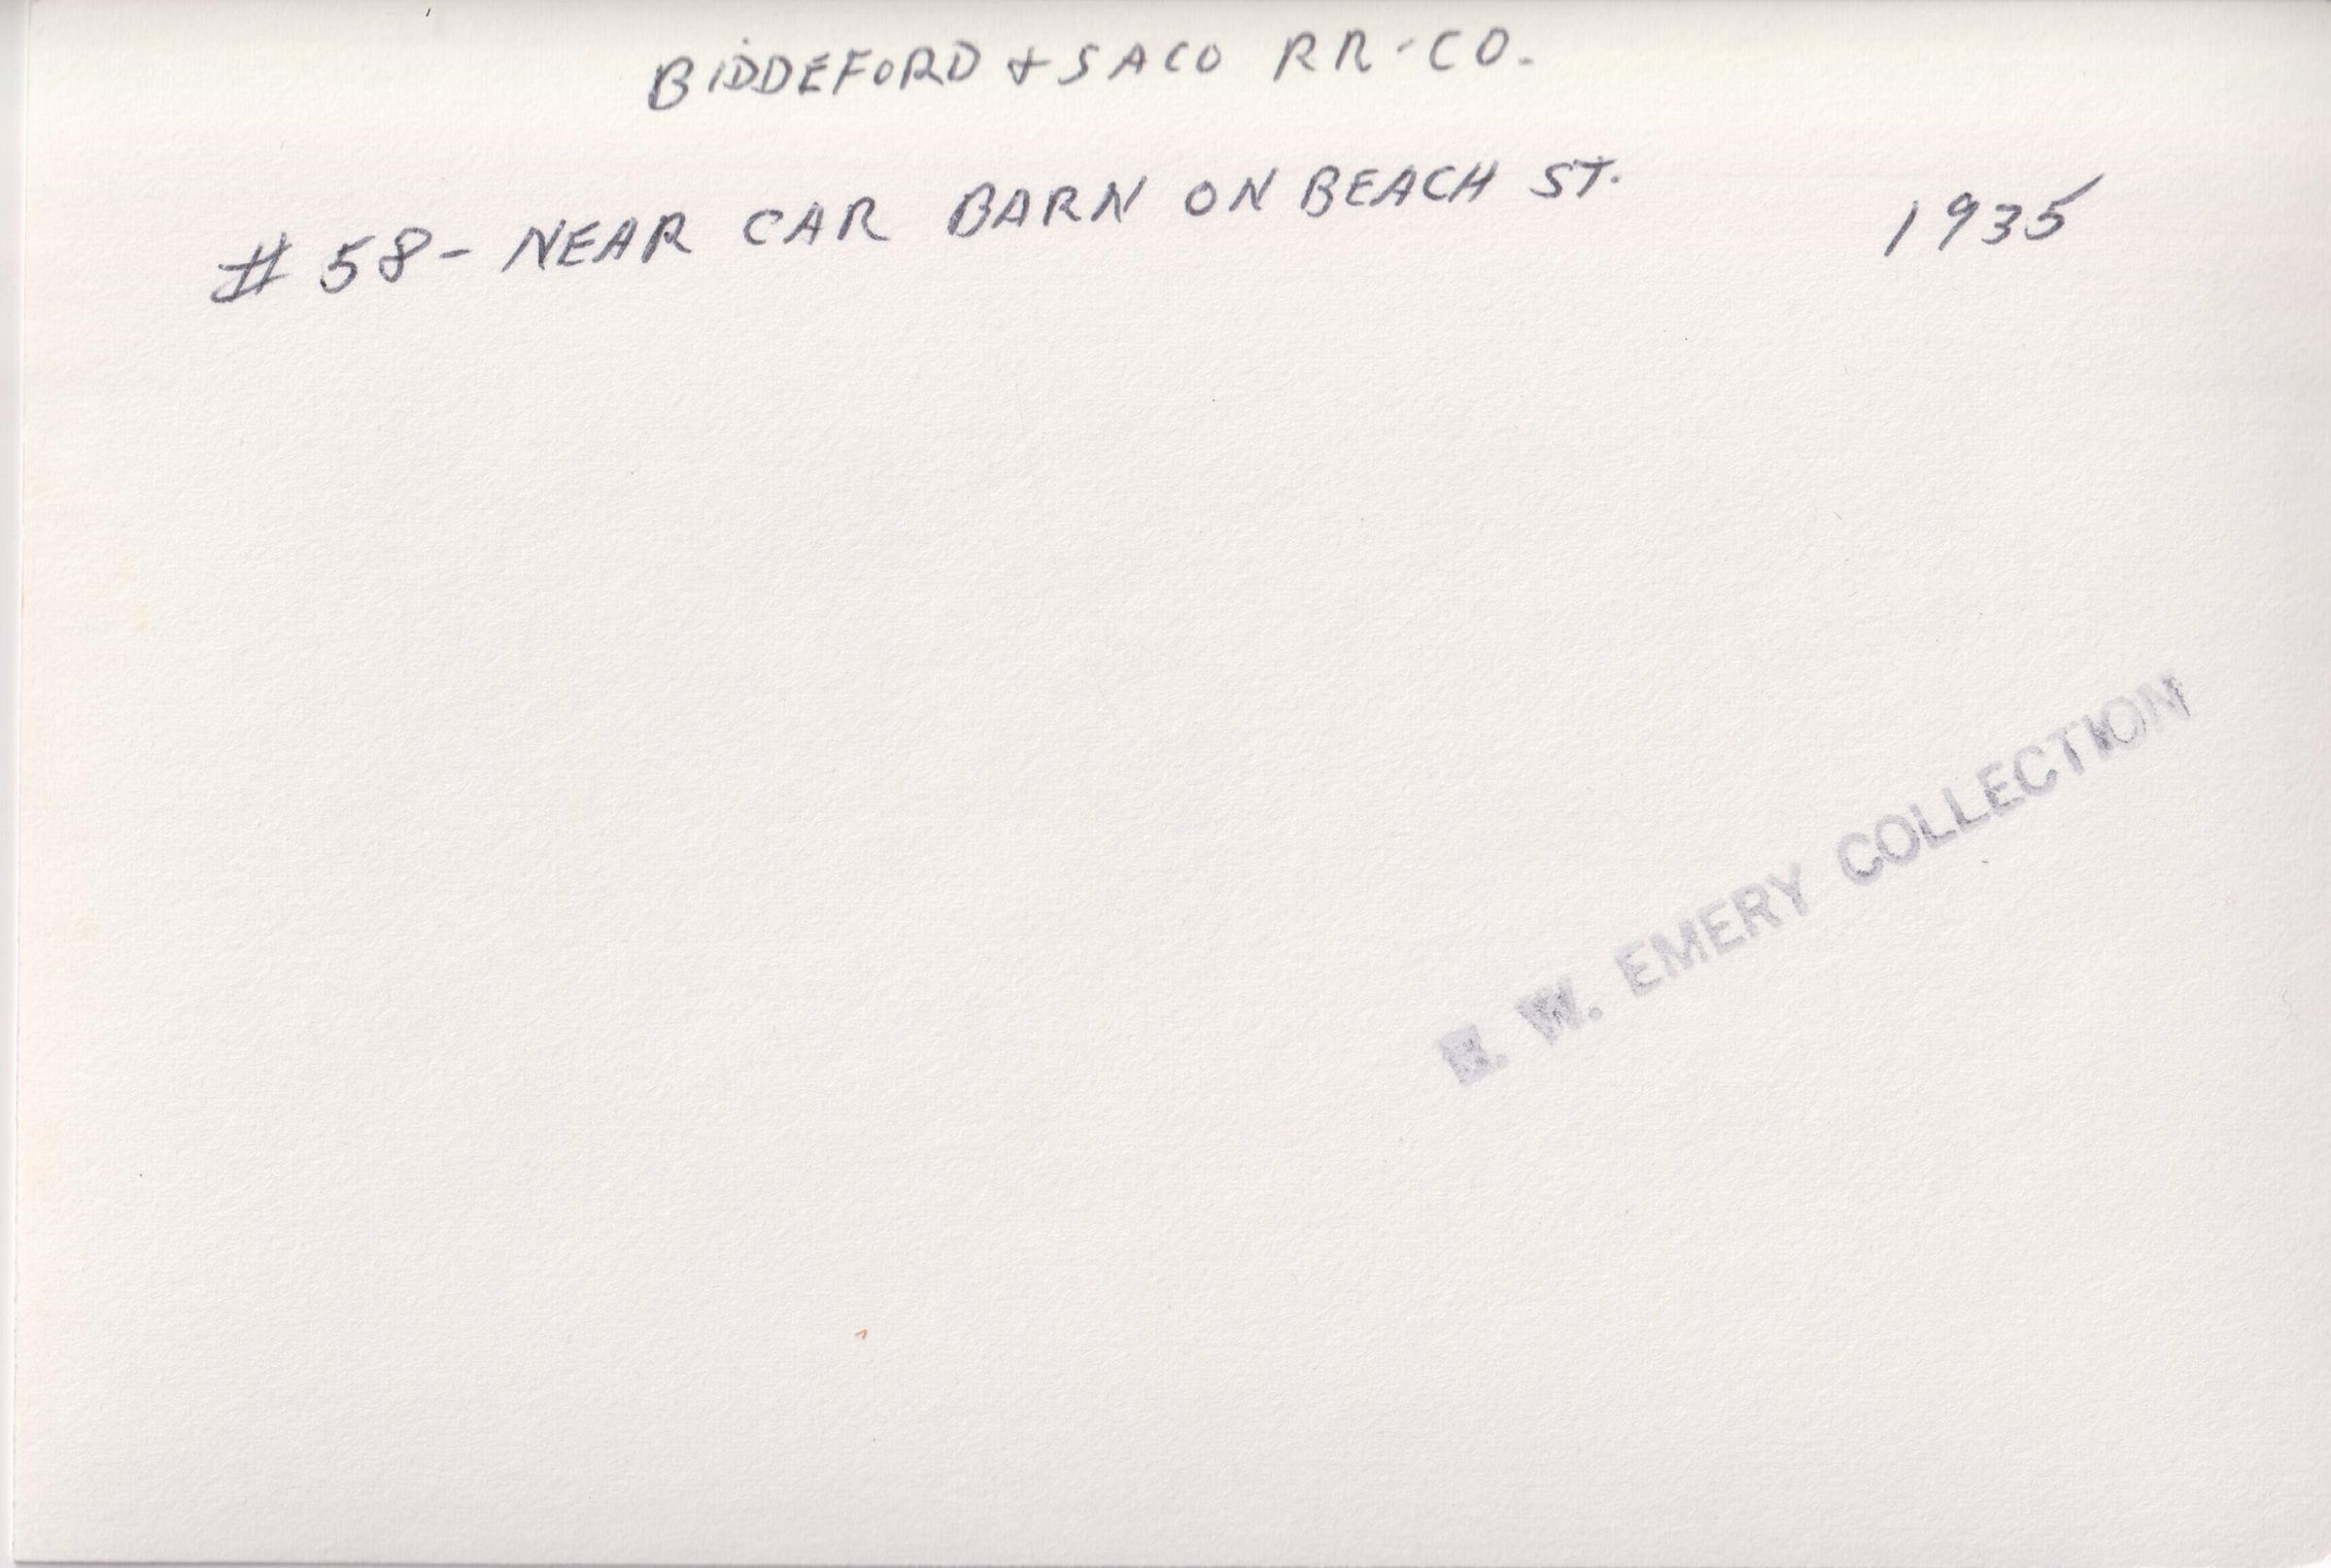 BIDDEFORD + SACO RR-CO.
# 58- NEAR CAR BARN ON BEACH ST. 1935
W. EMERY COLLECTION